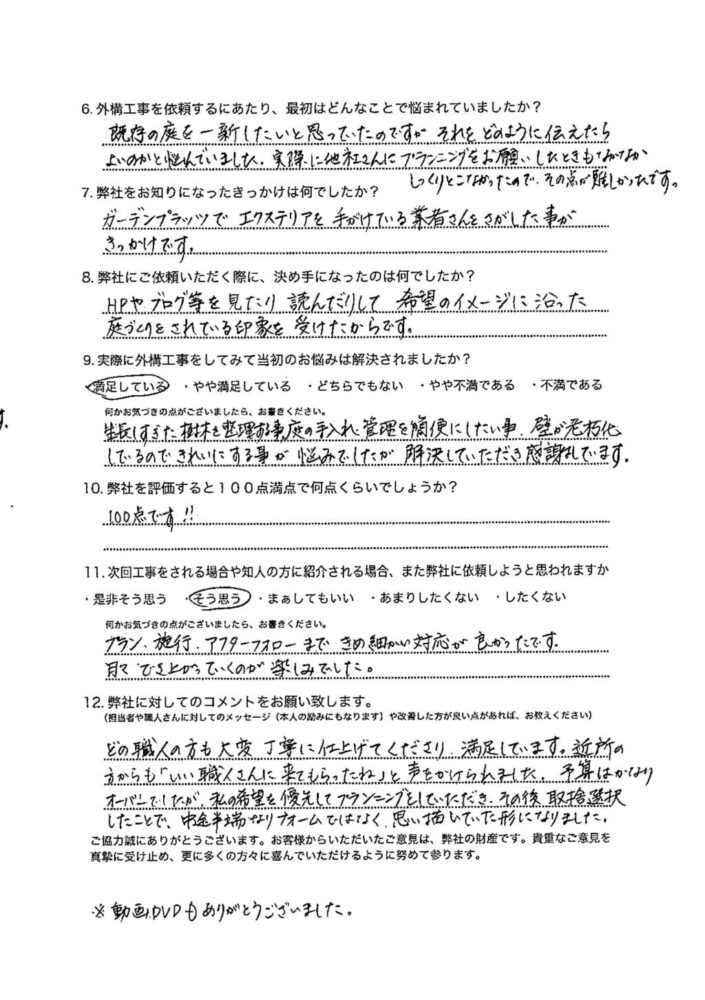 6. 外構工事を依頼するにあたり、最初はどんなことで悩まれていましたか？
既存の庭を一新したいと思っていたのですが それを どのように伝えたら
よいのかと悩んでいました。実際に他社さんにプランニングをお願いしたときもなかなか
しっくりとこなかったので、その点が難しかったです。
7. 弊社をお知りになったきっかけは何でしたか？
ガーデンプラッツで エクステリアを 手がけている業者さんをさがした事が
きっかけです。
8. 弊社にご依頼いただく際に、決め手になったのは何でしたか？
HPや ブログ等を見たり 読んだりして 希望のイメージに沿った
庭づくりをされている印象を 受けたからです。
9. 実際に外構工事をしてみて当初のお悩みは解決されましたか？
満足している ・やや満足している ・どちらでもない ・やや不満である ・不満である
何かお気づきの点がございましたら、お書きください。
生長しすぎた樹木を整理する事、庭の手入れ、管理を簡便にしたい事、壁が老朽化
しているのできれいにする事が 悩みでしたが 解決していただき感謝しています。
10. 弊社を評価すると１００点満点で何点くらいでしょうか？
100点です!!
11. 次回工事をされる場合や知人の方に紹介される場合、また弊社に依頼しようと思われますか
・是非そう思う ・そう思う ・まぁしてもいい ・あまりしたくない ・したくない
何かお気づきの点がございましたら、お書きください。
プラン、施行、アフターフォローまで きめ細かい対応が 良かったです。
日々 でき上がっていくのが 楽しみでした。
12. 弊社に対してのコメントをお願い致します。
（担当者や職人さんに対してのメッセージ（本人の励みにもなります）や改善した方が良い点があれば、お教えください）
どの職人の方も大変 丁寧に仕上げてくださり、満足しています。近所の
方からも「いい職人さんに来てもらったね」と 声をかけられました。 予算はかなり
オーバーでしたが、私の希望を優先してプランニングをしていただき、その後 取捨選択
したことで、中途半端なリフォームではなく、思い描いていた形になりました。
ご協力誠にありがとうございます。お客様からいただいたご意見は、弊社の財産です。貴重なご意見を
真摯に受け止め、更に多くの方々に喜んでいただけるように努めて参ります。
※動画DVDもありがとうございました。